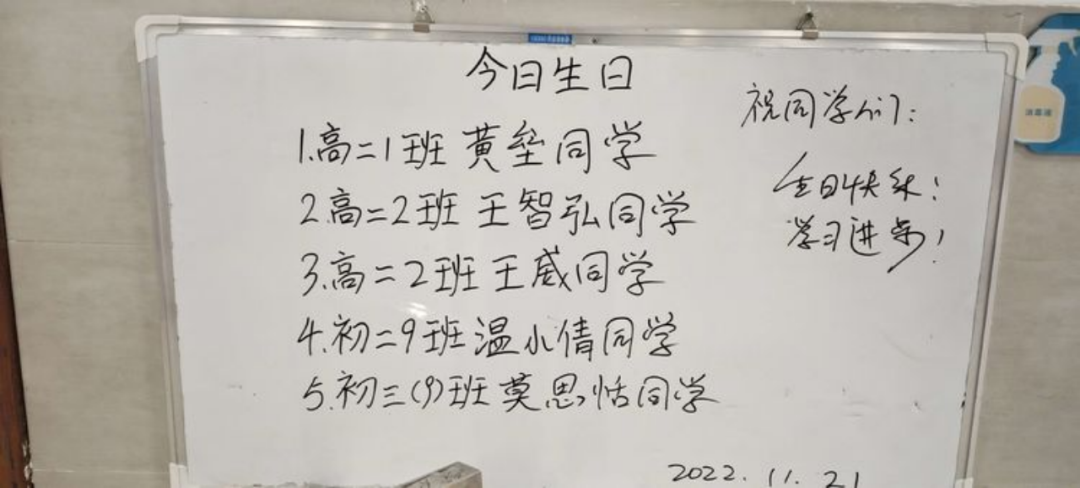 今日生日
1.高二1班 黄垒同学
2.高二2班 王智弘同学
3.高二2班 王威同学
4.初二9班温小倩同学
5.初三(9)班莫思恬同学
祝同学们:
生日快乐!
学习进步!
2022.11.21
消毒液